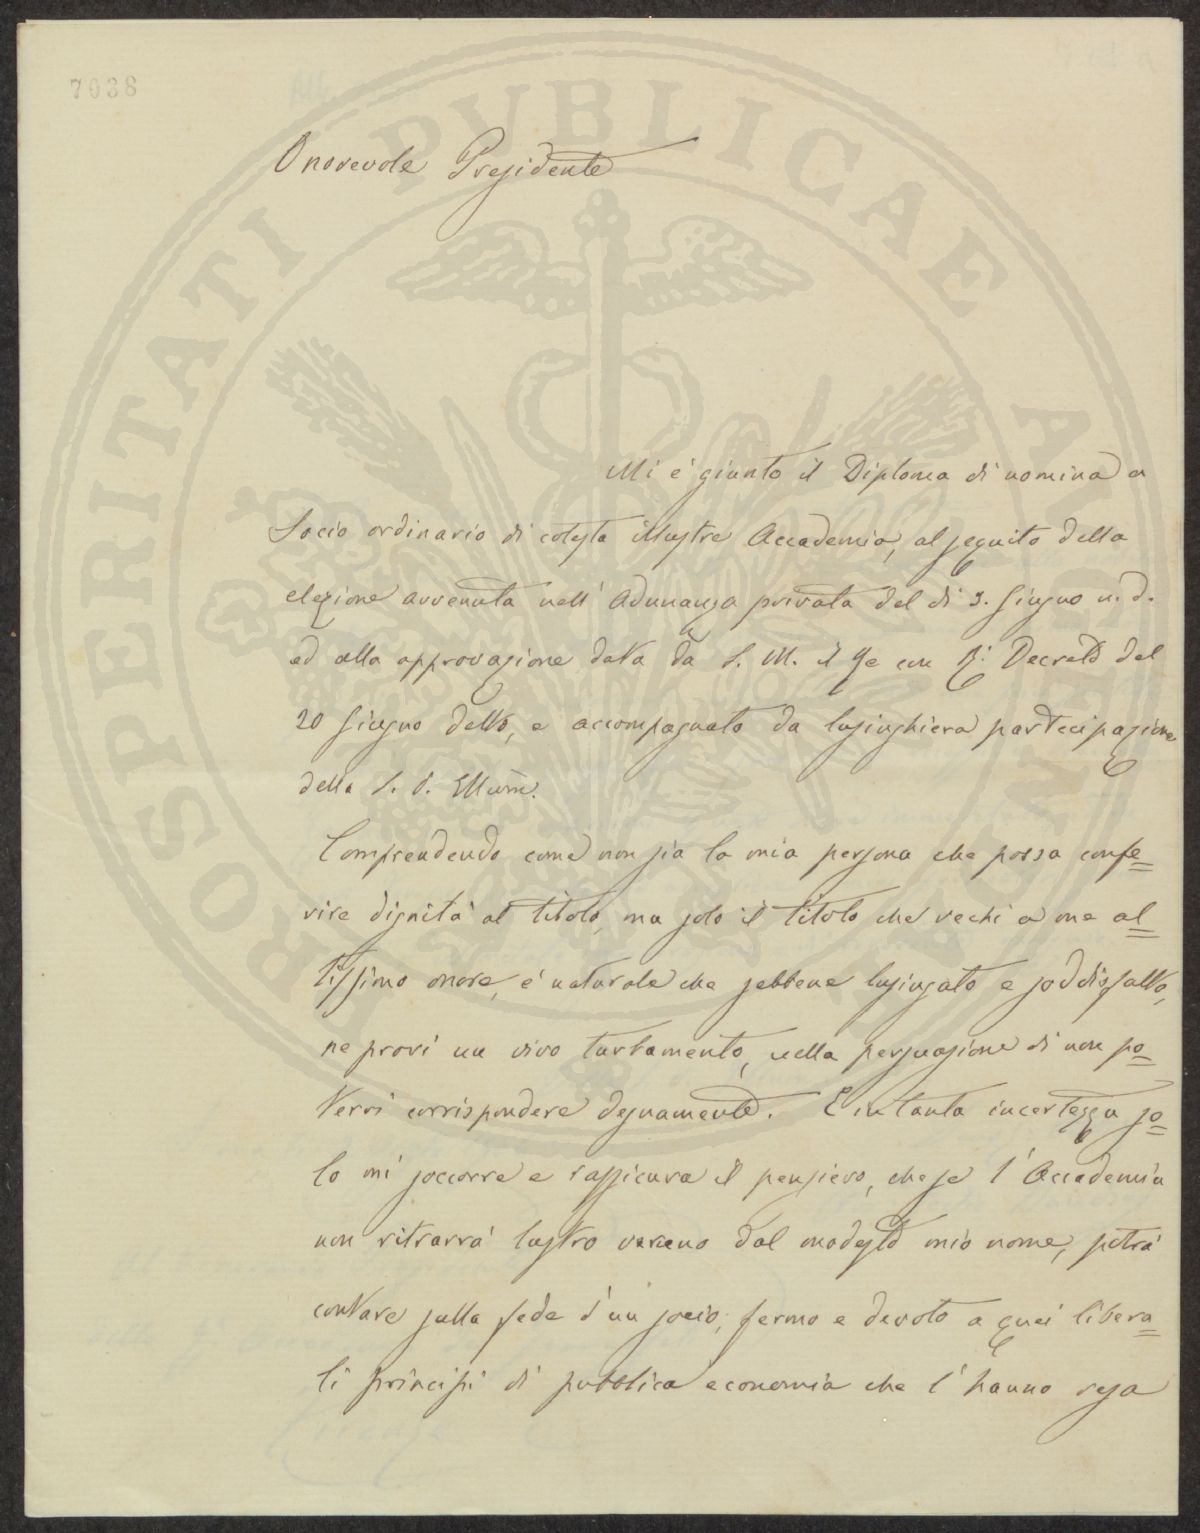 7938
PROSPERITATI PUBLICAE AUGENDAE
Onorevole Presidente
Mi è giunto il Diploma di nomina a
Socio ordinario di cotesta illustre Accademia, al seguito della
elezione avvenuta nell' Adunanza privata del dì 3. Giugno u. d.
ed alla approvazione data da S. M. il Re con R. Decreto del
20 Giugno detto, e accompagnato da lusinghiera partecipazione
della S. V. Illum.
Comprendendo come non sia la mia persona che possa confe=
rire dignità al titolo, ma solo il titolo che rechi a me al=
tissimo onore, è naturale che sebbene lusingato e soddisfatto,
ne provi un vivo turbamento, nella persuasione di non po=
tervi corrispondere degnamente. E in tanta incertezza so=
lo mi soccorre e rassicura il pensiero, che se l' Accademia
non ritrarrà lustro veruno dal modesto mio nome, potrà
contare sulla fede d'un socio, fermo e devoto a quei libera=
li principi di pubblica economia che l' hanno resa